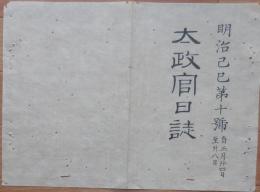 明治己巳第十號
自二月廿四日
至廿八日
太政官日誌